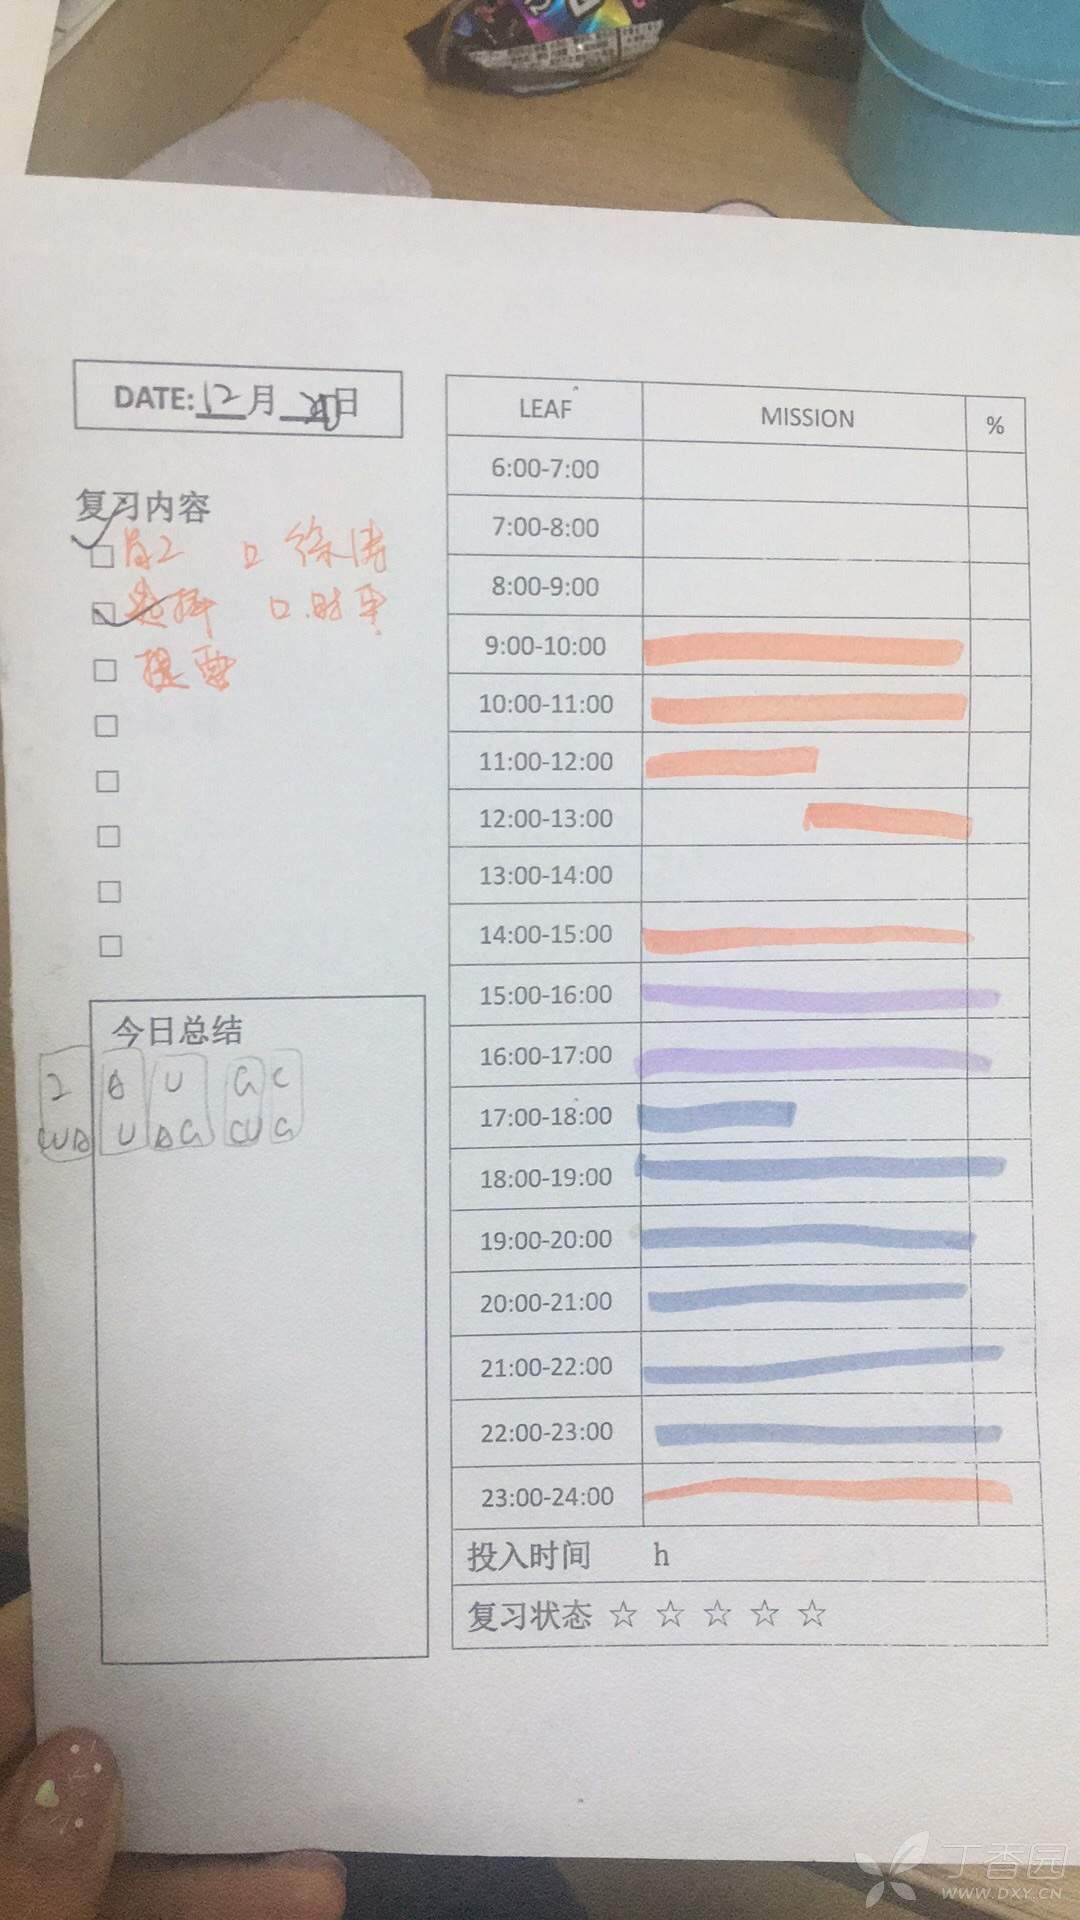 DATE: 12月 日
复习内容
□ 肖2 □ 徐涛
□ 选择 □ 时事
□
□
□
□
□
□
今日总结
I A U G C
CUA U AG CU G
LEAF MISSION %
6:00-7:00
7:00-8:00
8:00-9:00
9:00-10:00
10:00-11:00
11:00-12:00
12:00-13:00
13:00-14:00
14:00-15:00
15:00-16:00
16:00-17:00
17:00-18:00
18:00-19:00
19:00-20:00
20:00-21:00
21:00-22:00
22:00-23:00
23:00-24:00
投入时间 h
复习状态 ☆ ☆ ☆ ☆ ☆
丁香园
WWW.DXY.CN